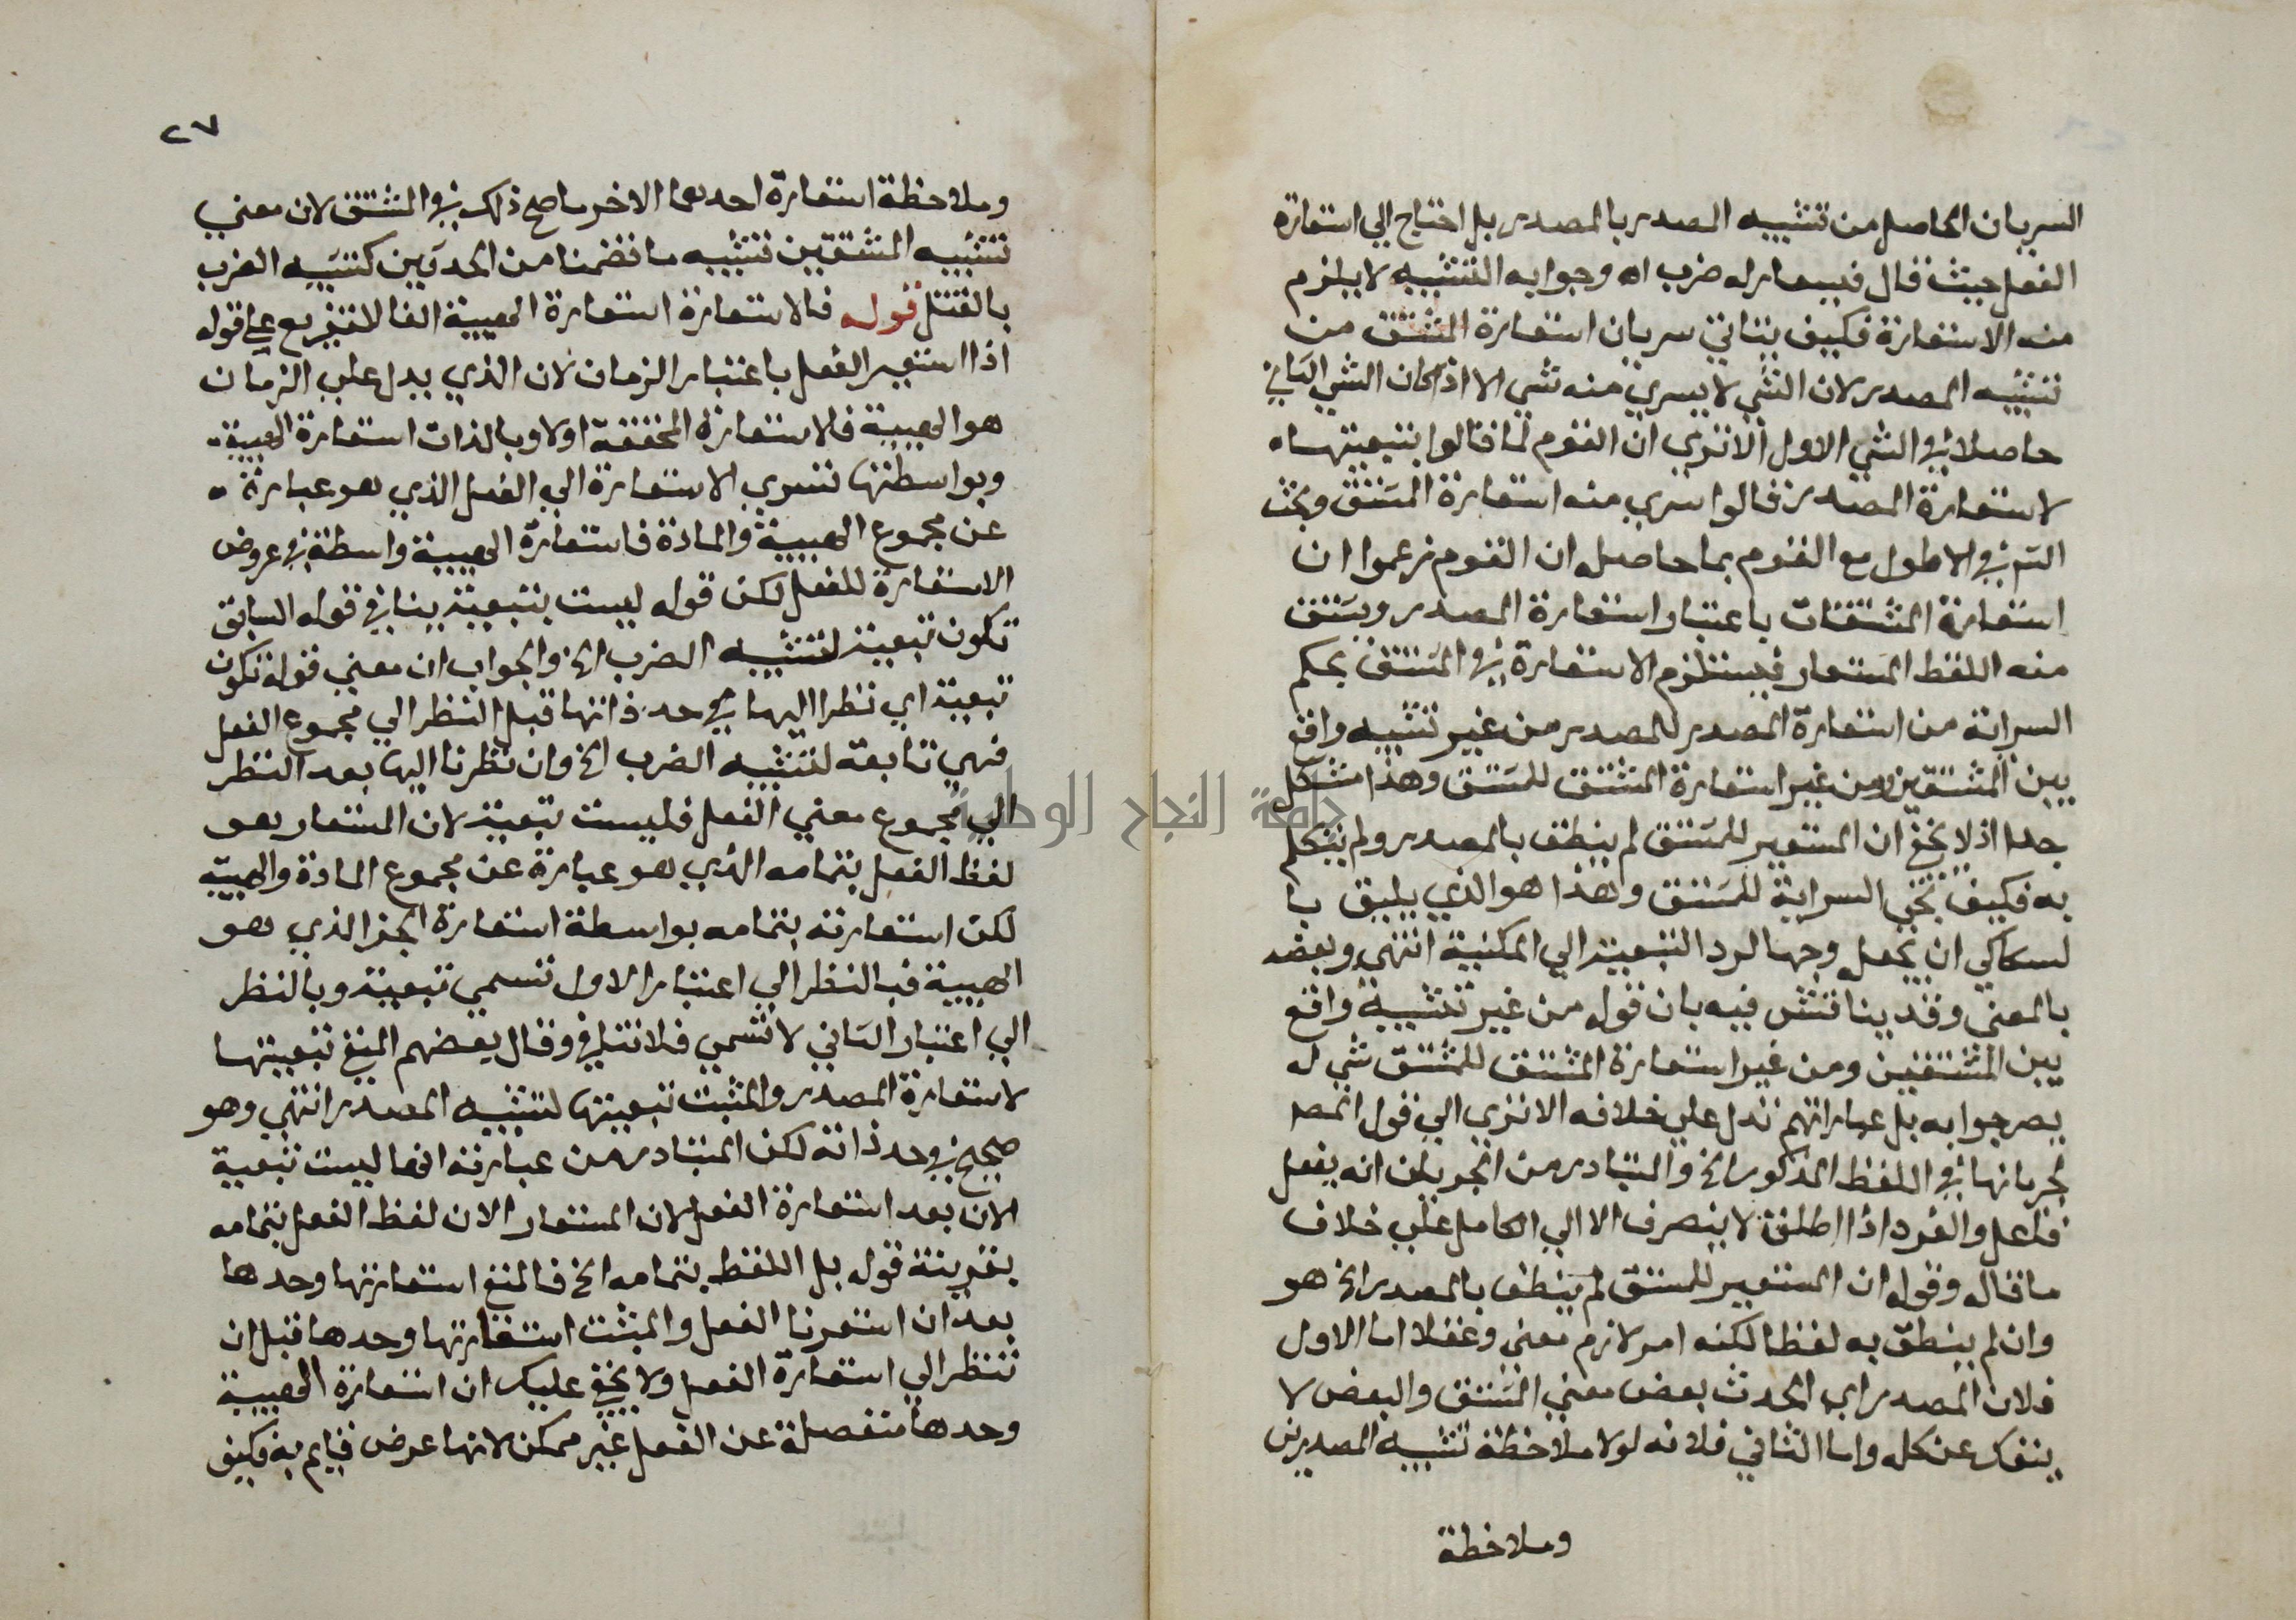 السريان الحاصل من تشبيه المصدر بالمصدر بل احتاج الي استعارة
الفعل حيث قال فيستعار له ضرب اه وجوابه التشبيه لا يلزم
منه الاستعارة فكيف يتاتي سريان استعارة المشتق من
تشبيه المصدر لان الشي لا يسري منه شي الا اذا كان الشي الثاني
حاصلا في الشي الاول الا تري ان القوم لما قالوا بتبعيتها
لاستعارة المصدر قالوا سري منه استعارة المشتق وبحث
في الاطول مع القوم بما حاصله ان القوم زعموا ان
استعارة المشتقات باعتبار استعارة المصدر ويشتق
منه اللفظ المستعار فيستلزم الاستعارة في المشتق بحكم
السراية من استعارة المصدر للمصدر من غير تشبيه واقع
بين المشتقين ومن غير استعارة المشتق للمشتق وهذا مشكل
جدا اذ لا يخفي ان المستعير للمشتق لم ينطق بالمصدر ولم يتكلم
به فكيف السراية للمشتق وهذا هو الذي يليق با
لسكاكي ان يجعل وجها لرد التبعية الي المكنية انتهي وبعضه
بالمعني وقد يناقش فيه بان قوله من غير تشبيه واقع
بين المشتقين ومن غير استعارة المشتق للمشتق شي لم
يصرحوا به بل عباراتهم تدل علي خلافه الا تري الي قول المص
لجريانها في اللفظ المذكور الخ والمتبادر من الجريان انه بفعل
فاعل والفرد اذا اطلق لا ينصرف الا الي الكامل علي خلاف
ما قال وقوله ان المستعير للمشتق لم ينطق بالمصدر الخ هو
وان لم ينطق به لفظا لكنه امر لازم معني وعقلا اما الاول
فلان المصدر اي الحدث بعض معني المشتق والبعض لا
ينفك عن كله واما الثاني فلانه لولا ملاحظة تشبيه المصدرين
وملاحظة
٢٧
وملاحظة استعارة احدهما الاخر ما صح ذلك في المشتق لان معني
تشبيه المشتقين تشبيه ما تضمنا من الحدثين كتشبيه الضرب
بالقتل قوله فالاستعارة استعارة الهيية الفا للتفريع علي قوله
اذا استعير الفعل باعتبار الزمان لان الذي يدل علي الزمان
هو الهيية فالاستعارة المحققة اولا وبالذات استعارة الهيية
وبواسطتها تسري الاستعارة الي الفعل الذي هو عبارة
عن مجموع الهيية والمادة فاستعارة الهيية واسطة في عروض
الاستعارة للفعل لكن قوله ليست بتبعية ينافي قوله السابق
تكون تبعية لتشبيه الضرب الخ والجواب ان معني قوله تكون
تبعية اي نظرا اليها في حد ذاتها قبل النظر الي مجموع الفعل
فهي تابعة لتشبيه الضرب الخ وان نظرنا اليها بعد النظر
الي مجموع معني الفعل فليست تبعية لان المستعار هو
لفظ الفعل بتمامه الذي هو عبارة عن مجموع المادة والهيية
لكن استعارته بتمامه بواسطة استعارة الجز الذي هو
الهيية فبالنظر الي اعتبار الاول تسمي تبعية وبالنظر
الي اعتبار الثاني لا تسمي فلا تنافي وقال بعضهم المنفي تبعيتها
لاستعارة المصدر والمثبت تبعيتها لتشبيه المصدر انتهي وهو
صحيح في حد ذاته لكن المتبادر من عبارته انها ليست تبعية
الان بعد استعارة الفعل لان المستعار الان لفظ الفعل بتمامه
بقرينة قوله بل اللفظ بتمامه الخ فالمنفي استعارتها وحدها
بعد ان استعرنا الفعل والمثبت استعارتها وحدها قبل ان
ننظر الي استعارة الفعل ولا يخفي عليك ان استعارة الهيية
وحدها منفصلة عن الفعل غير ممكن لانها عرض قايم به فكيف
جامعة النجاح الوطنية